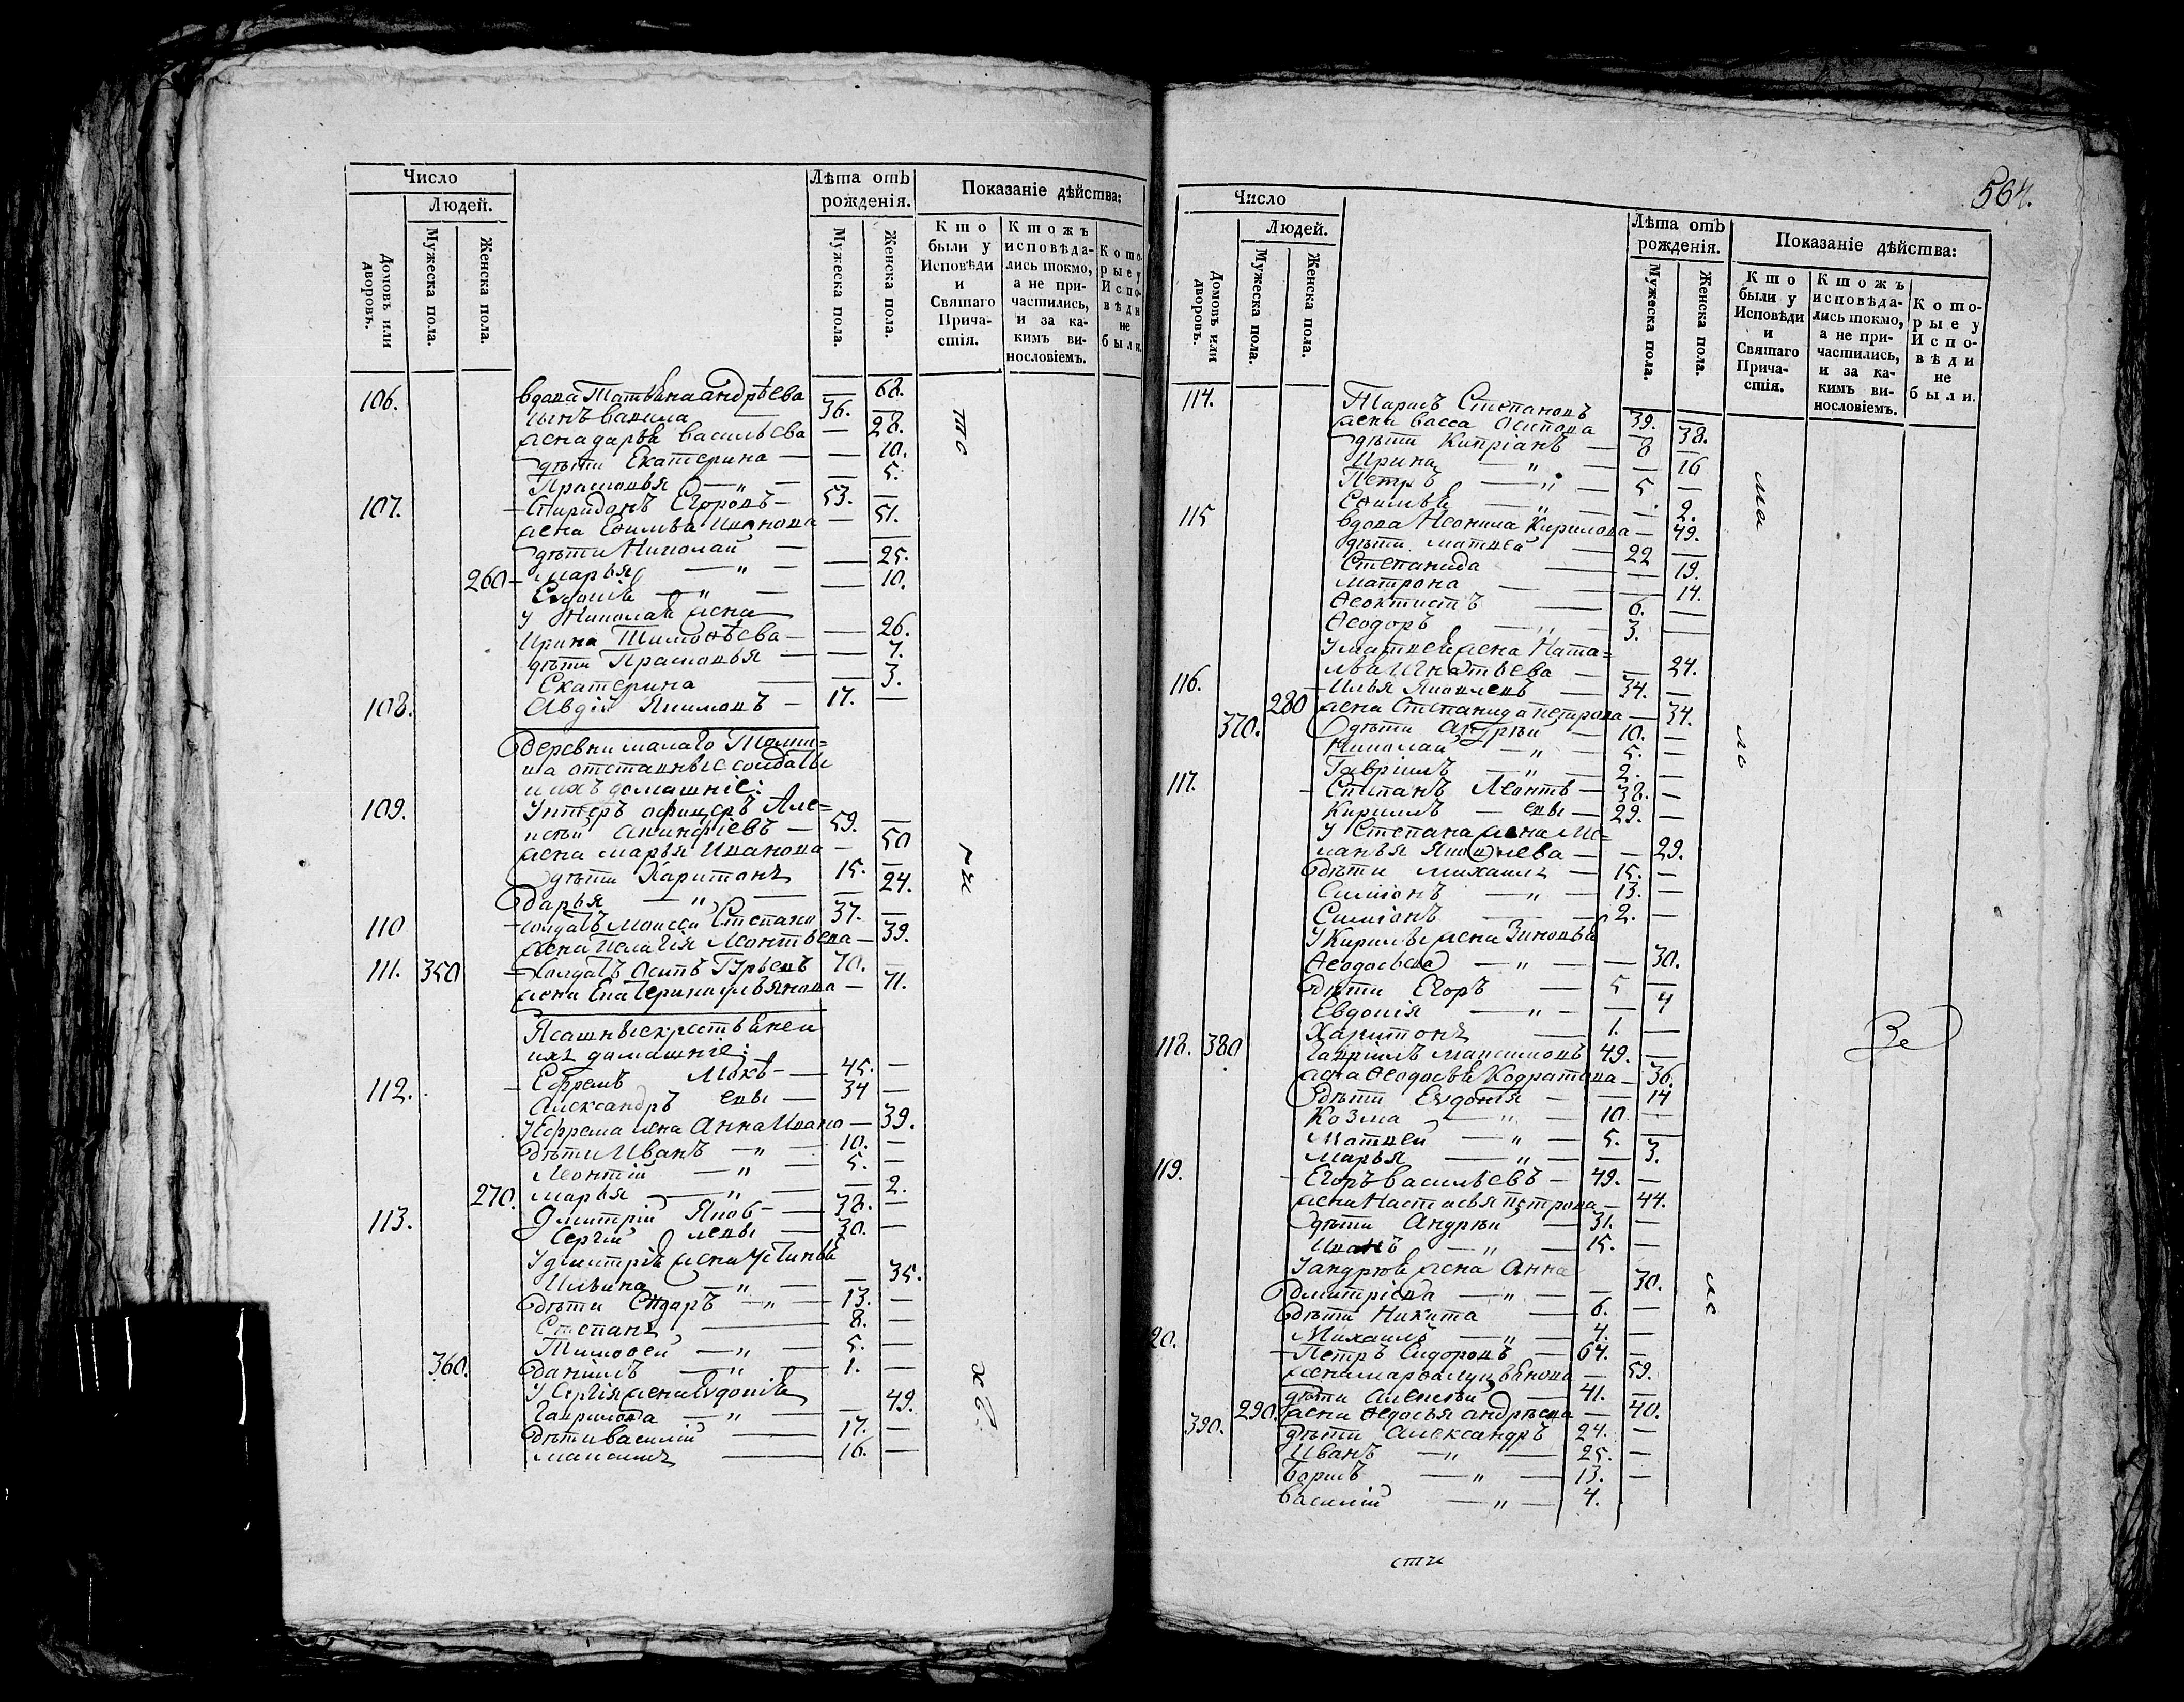 Число
Людей.
Домовъ или дворовъ.
Мужеска пола.
Женска пола.
Лѣта отъ рожденія.
Мужеска пола.
Женска пола.
Показаніе дѣйства:
Кто были у Исповѣди и Святаго Причастія.
Ктожъ исповѣдались токмо, а не причастились, и за какимъ винословіемъ.
Которые у Исповѣди не были.
106. вдова Татьяна андрѣева — 62.
сынъ вавила 36. —
жена дарья васильева — 28.
дѣти Екатерина — 10.
Прасковья — " — 5.
107. Спиридонъ Егоровъ 53. —
жена Ѳимья Иванова — 51.
дѣти Николай —
Марья — " — 25.
260 Евдокія — " — 10.
У Николая жена
Ирина Тимоѳѣева — 26.
дѣти Прасковья — 7.
Екатерина — 3.
108. Авдій Якимовъ 17. —
деревни малаго Толми=
на отставные солдаты
и ихъ домашніе:
109. Унтеръ офицеръ Але=
ксѣй Акинфіевъ 59. —
жена марья Иванова — 50
дѣти Харитонъ 15. —
дарья — " — 24.
110 солдатъ Моисей Степано 37. —
жена Пелагія Леонтьева — 39.
111. 350 солдатъ Осипъ Гурьевъ 70. —
жена Екатерина ульянова — 71.
Ясашные крестьяне и
ихъ домашніе:
112. Ефремъ Мокѣ- 45. —
Александръ евы 34 —
У Ефрема жена Анна Ивано — 39.
дѣти Иванъ — " — 10. —
Леонтій — " — 5. —
270. марья — " — 2.
113. Дмитрій Яков- 38. —
Сергій левы 30. —
У дмитрія жена Устинья
Ильина — " — 35.
дѣти Сидоръ — " — 13. —
Степанъ 8. —
Тимоѳей — " — 5. —
360. даніилъ — " — 1. —
У Сергія жена Евдокія
Гаврилова — " — 49.
дѣти василій 17. —
максимъ 16. —
564.
Число
Людей.
Домовъ или дворовъ.
Мужеска пола.
Женска пола.
Лѣта отъ рожденія.
Мужеска пола.
Женска пола.
Показаніе дѣйства:
Кто были у Исповѣди и Святаго Причастія.
Ктожъ исповѣдались токмо, а не причастились, и за какимъ винословіемъ.
Которые у Исповѣди не были.
114. Тарасъ Степановъ 39. —
жена васса Осипова — 38.
дѣти Кипріанъ 8 —
Ирина — " — 16
Петръ — " — 5 —
Ѳимья — " — 2.
115 вдова Неонила Кирилова — 49.
дѣти матвей 22 —
Степанида — 19.
матрона — 14.
Ѳеоктистъ 6. —
Ѳеодоръ — " — 3. —
У матвея жена Ната=
лья Игнатьева — 24.
116. Илья Яковлевъ 34. —
280 жена Степанида петрова — 34.
370. дѣти Андрѣй 10. —
Николай — " — 5. —
Гавріилъ — " — 2. —
117. Степанъ Леонтѣ- 38. —
Кирилъ евы 29. —
У Степана жена Ме=
ланья Яковлева — 29.
дѣти михаилъ 15. —
Симіонъ — " — 13. —
Симіонъ 2. —
У Кирилы жена Зиновья
Ѳеодосьева — " — 30.
дѣти Егоръ 5 —
Евдокія — " — 4
Харитонъ 1. —
118. 380 Гавріилъ максимовъ 49. —
жена Ѳеодосья Кодратова — 36.
дѣти Евдокія — 14
Козма — " — 10 —
Матвей — " — 5. —
Марья — " — 3.
119. Егоръ васильевъ 49. —
жена Настасья петрова — 44.
дѣти Андрѣй 31. —
Иванъ — " — 15. —
У андрѣя жена Анна
дмитріева — " — 30.
дѣти Никита 6. —
Михаилъ — " — 4. —
20. Петръ Сидоровъ 64. —
жена марѳа лукьянова — 59.
дѣти Алексѣй 41. —
290. жена Ѳедосья андрѣева — 40.
390. дѣти Александръ 24. —
Иванъ — " — 25. —
Борисъ — " — 13. —
василій — " — 4.